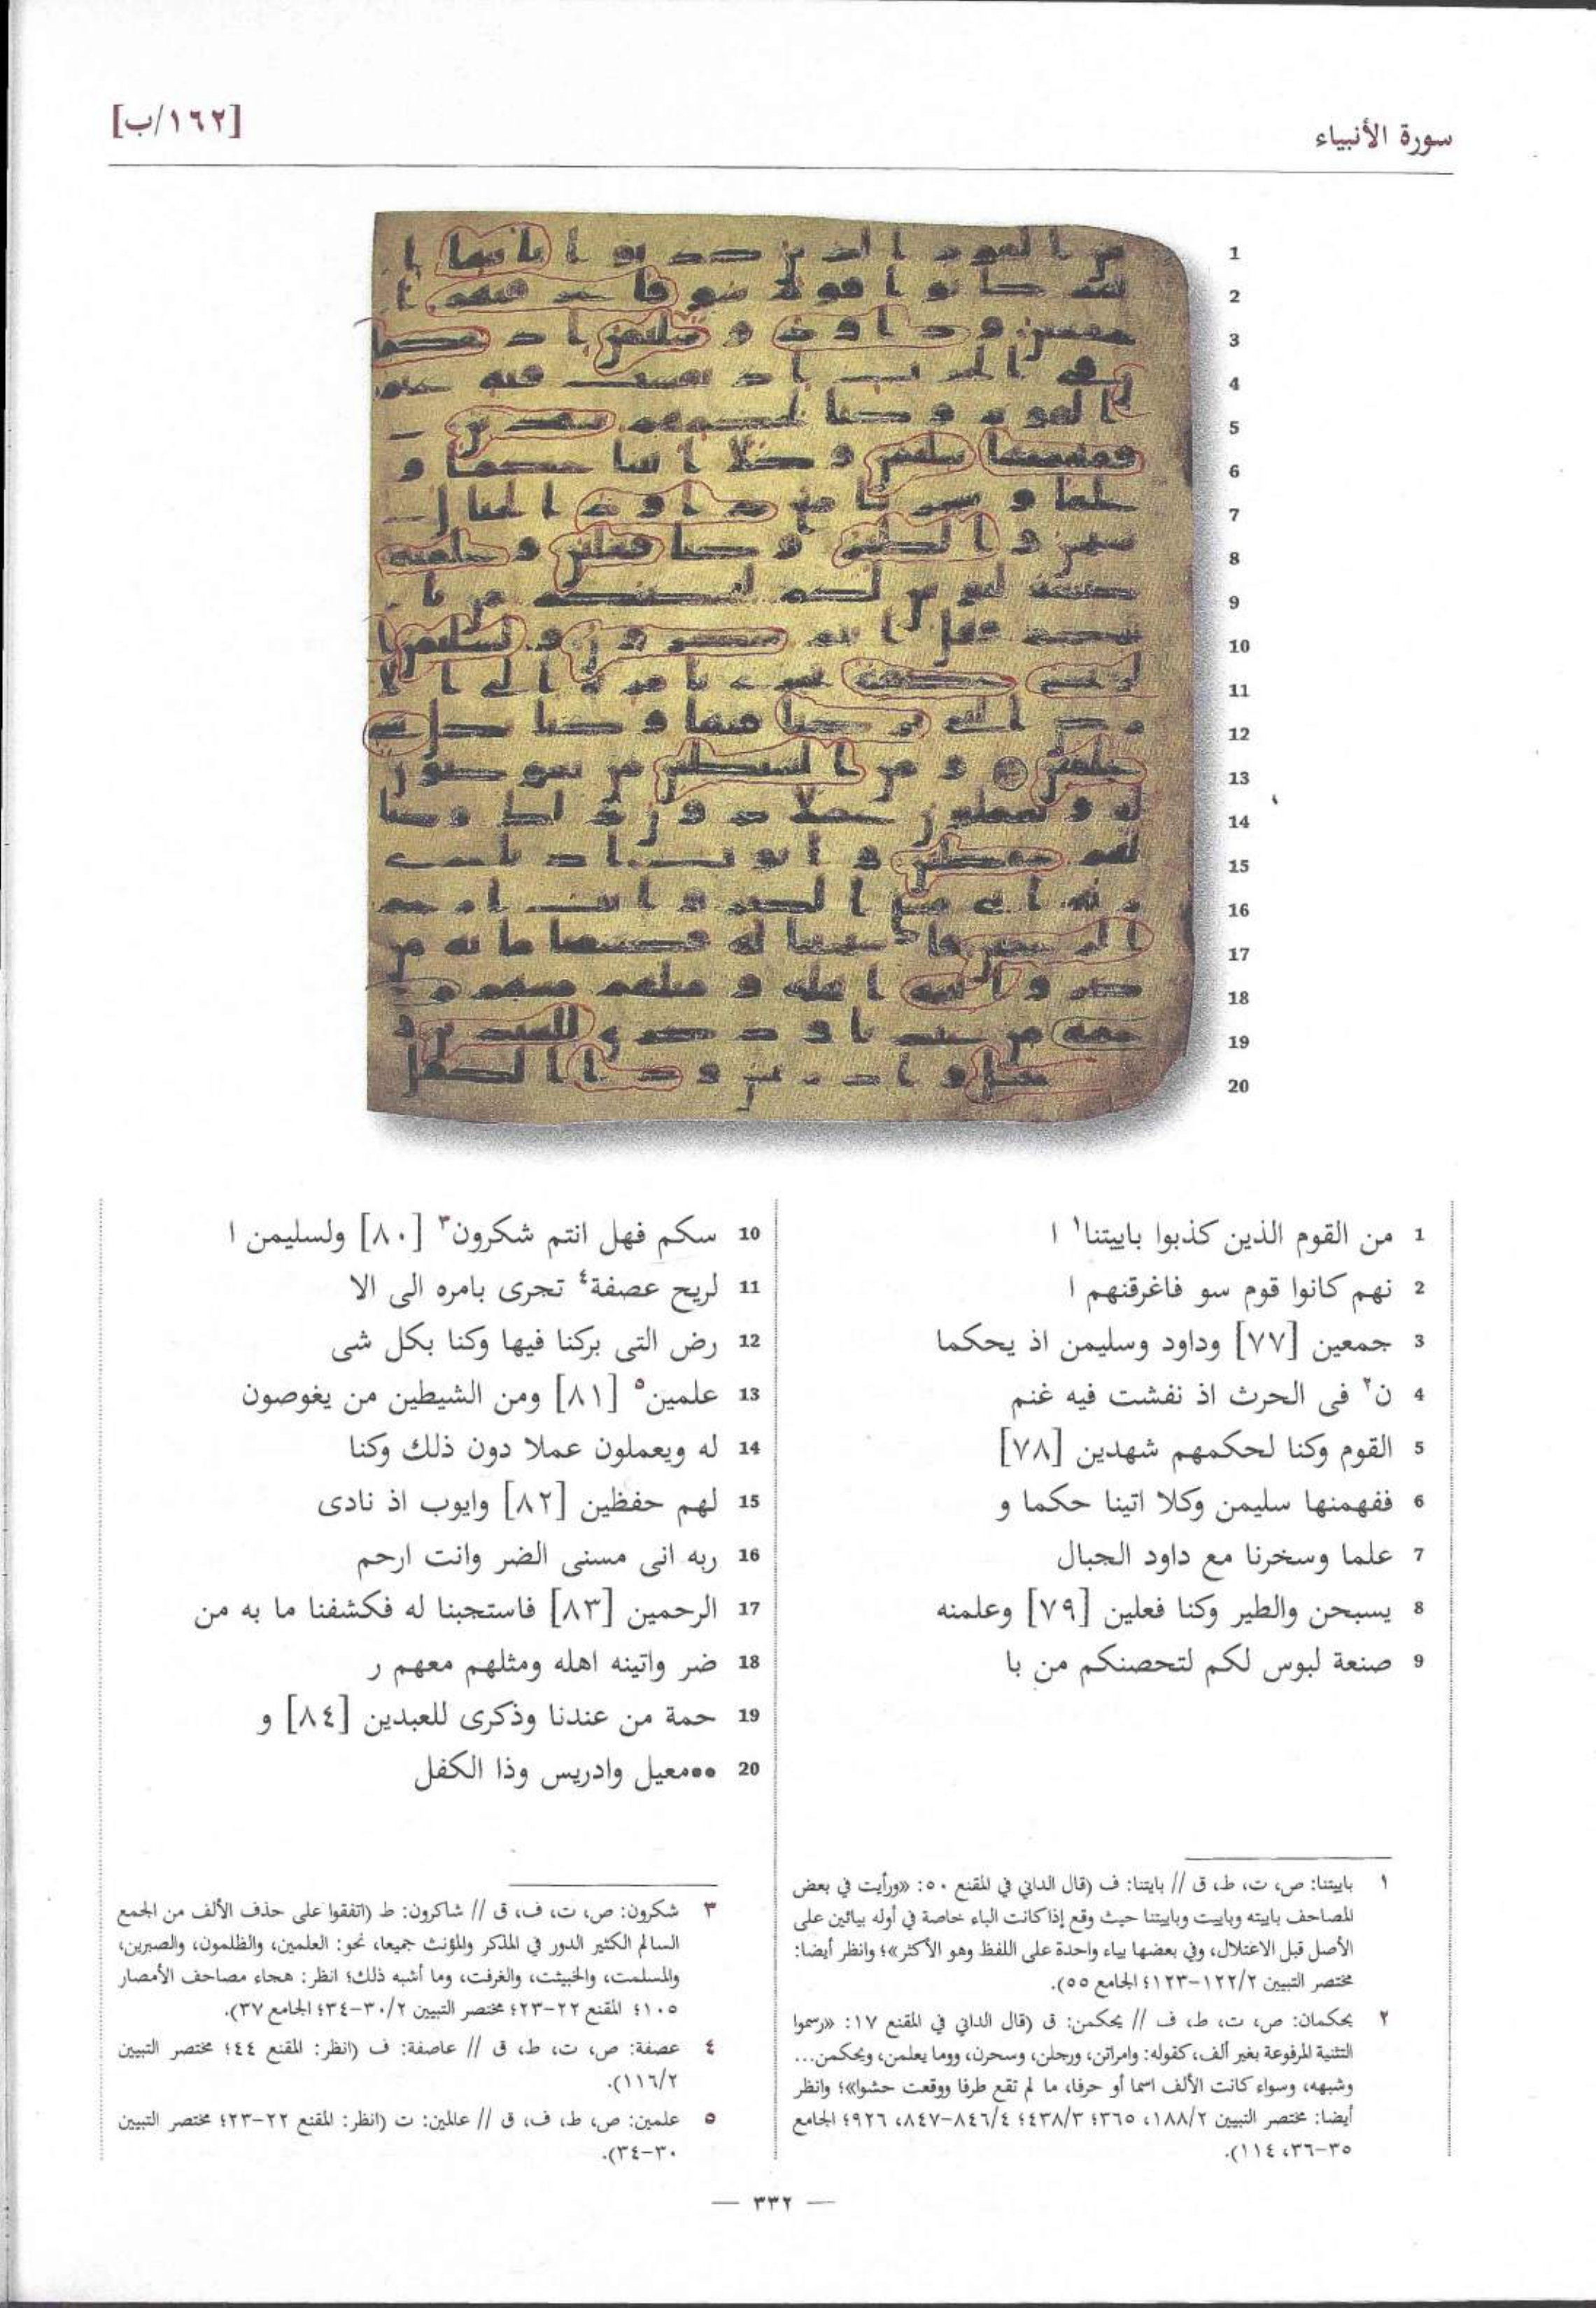 سورة الأنبياء
[١٦٢/ب]
1
2
3
4
5
6
7
8
9
10
11
12
13
14
15
16
17
18
19
20
1 من القوم الذين كذبوا باييتنا١ ا
2 نهم كانوا قوم سو فاغرقنهم ا
3 جمعين [٧٧] وداود وسليمن اذ يحكما
4 ن٢ فى الحرث اذ نفشت فيه غنم
5 القوم وكنا لحكمهم شهدين [٧٨]
6 ففهمنها سليمن وكلا اتينا حكما و
7 علما وسخرنا مع داود الجبال
8 يسبحن والطير وكنا فعلين [٧٩] وعلمنه
9 صنعة لبوس لكم لتحصنكم من با
10 سكم فهل انتم شكرون٣ [٨٠] ولسليمن ا
11 لريح عصفة٤ تجرى بامره الى الا
12 رض التى بركنا فيها وكنا بكل شى
13 علمين٥ [٨١] ومن الشيطين من يغوصون
14 له ويعملون عملا دون ذلك وكنا
15 لهم حفظين [٨٢] وايوب اذ نادى
16 ربه انى مسنى الضر وانت ارحم
17 الرحمين [٨٣] فاستجبنا له فكشفنا ما به من
18 ضر واتينه اهله ومثلهم معهم ر
19 حمة من عندنا وذكرى للعبدين [٨٤] و
20 ●●معيل وادريس وذا الكفل
١ باييتنا: ص، ت، ط، ق // بايتنا: ف (قال الداني في المقنع ٥٠: «ورأيت في بعض
المصاحف باييته وباييت وباييتنا حيث وقع إذا كانت الباء خاصة في أوله بيائين على
الأصل قبل الاعتلال، وفي بعضها بياء واحدة على اللفظ وهو الأكثر»؛ وانظر أيضا:
مختصر التبيين ١٢٢/٢-١٢٣؛ الجامع ٥٥).
٢ يحكمان: ص، ت، ط، ف // يحكمن: ق (قال الداني في المقنع ١٧: «رسموا
التثنية المرفوعة بغير ألف، كقوله: وامراتن، ورجلن، وسحرن، ووما يعلمن، ويحكمن...
وشبهه، وسواء كانت الألف اسما أو حرفا، ما لم تقع طرفا ووقعت حشوا»؛ وانظر
أيضا: مختصر التبيين ١٨٨/٢، ٣٦٥؛ ٤٣٨/٣؛ ٨٤٦/٤-٨٤٧، ٩٢٦؛ الجامع
٣٥-٣٦، ١١٤).
٣ شكرون: ص، ت، ف، ق // شاكرون: ط (اتفقوا على حذف الألف من الجمع
السالم الكثير الدور في المذكر والمؤنث جميعا، نحو: العلمين، والظلمون، والصبرين،
والمسلمت، والخبيثت، والغرفت، وما أشبه ذلك؛ انظر: هجاء مصاحف الأمصار
١٠٥؛ المقنع ٢٢-٢٣؛ مختصر التبيين ٣٠/٢-٣٤؛ الجامع ٣٧).
٤ عصفة: ص، ت، ط، ق // عاصفة: ف (انظر: المقنع ٤٤؛ مختصر التبيين
١١٦/٢).
٥ علمين: ص، ط، ف، ق // عالمين: ت (انظر: المقنع ٢٢-٢٣؛ مختصر التبيين
٣٠-٣٤).
— ٣٣٢ —